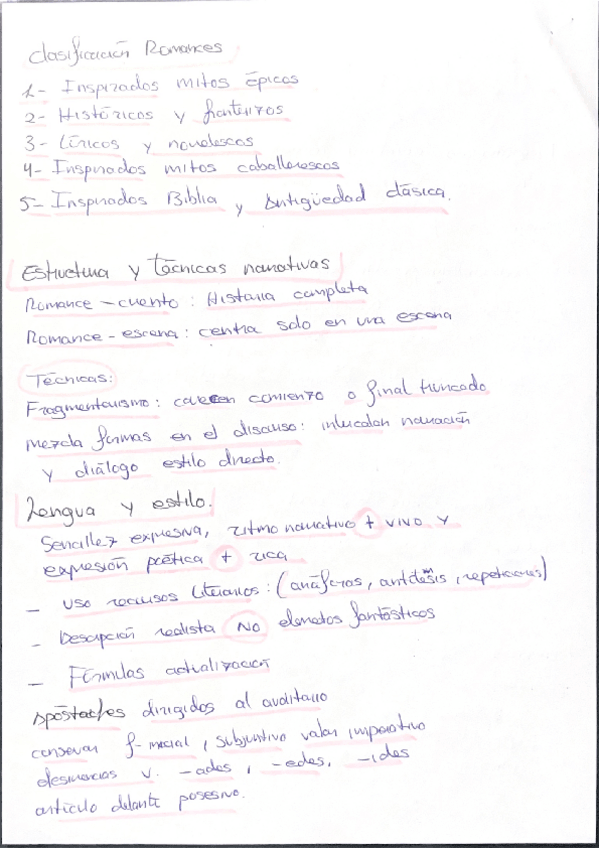 Clasificación Romances
1- Inspirados mitos épicos
2- Históricos y fronterizos
3- Líricos y novelescos
4- Inspirados mitos caballerescos
5- Inspirados Biblia y Antigüedad clásica.
Estructura y técnicas narrativas
Romance - cuento : Historia completa
Romance - escena : centra solo en una escena
Técnicas:
Fragmentarismo : carecen comienzo o final truncado
Mezcla formas en el discurso : intercalan narración
y diálogo estilo directo.
Lengua y estilo.
Sencillez expresiva, ritmo narrativo + vivo y
expresión poética + rica
- Uso recursos literarios : (anáforas, antítesis, repeticiones)
- Descripción realista NO elementos fantásticos
- Fórmulas actualización
Apóstrofes dirigidos al auditorio
conservan f- inicial, subjuntivo valor imperativo
desinencias v. -ades, -edes, -ides
artículo delante posesivo.